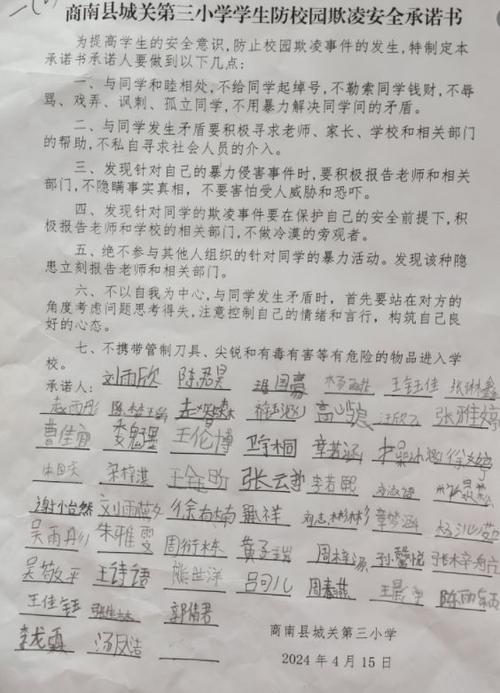 商南县城关第三小学学生防校园欺凌安全承诺书
为提高学生的安全意识,防止校园欺凌事件的发生,特制定本
承诺书承诺人要做到以下几点:
一、与同学和睦相处,不给同学起绰号,不勒索同学钱财,不辱
骂、戏弄、讽刺、孤立同学,不用暴力解决同学间的矛盾。
二、与同学发生矛盾要积极寻求老师、家长、学校和相关部门
的帮助,不私自寻求社会人员的介入。
三、发现针对自己的暴力侵害事件时,要积极报告老师和相关
部门,不隐瞒事实真相,不要害怕受人威胁和恐吓。
四、发现针对同学的欺凌事件要在保护自己的安全前提下,积
极报告老师和学校的相关部门,不做冷漠的旁观者。
五、绝不参与其他人组织的针对同学的暴力活动。发现该种隐
患立刻报告老师和相关部门。
六、不以自我为中心,与同学发生矛盾时,首先要站在对方的
角度考虑问题思考得失,注意控制自己的情绪和言行,构筑自己良
好的心态。
七、不携带管制刀具、尖锐和有毒有害等有危险的物品进入学
校。
承诺人: 刘雨欣 陈君昊 王钰佳
赵雨彤 汪欣乙 张雅婷
曹佳宜 王伦博 章若涵
张云梦 李若熙
谢怡然 章梦涵
吴雨彤 朱雅雯 周衍栋 周梓源 孙馨悦
吴敬平 王诗语 熊世洋 吕可儿 周春燕
王佳钰 郭倩君
李龙 汤凤洁
商南县城关第三小学
2024年4月15日